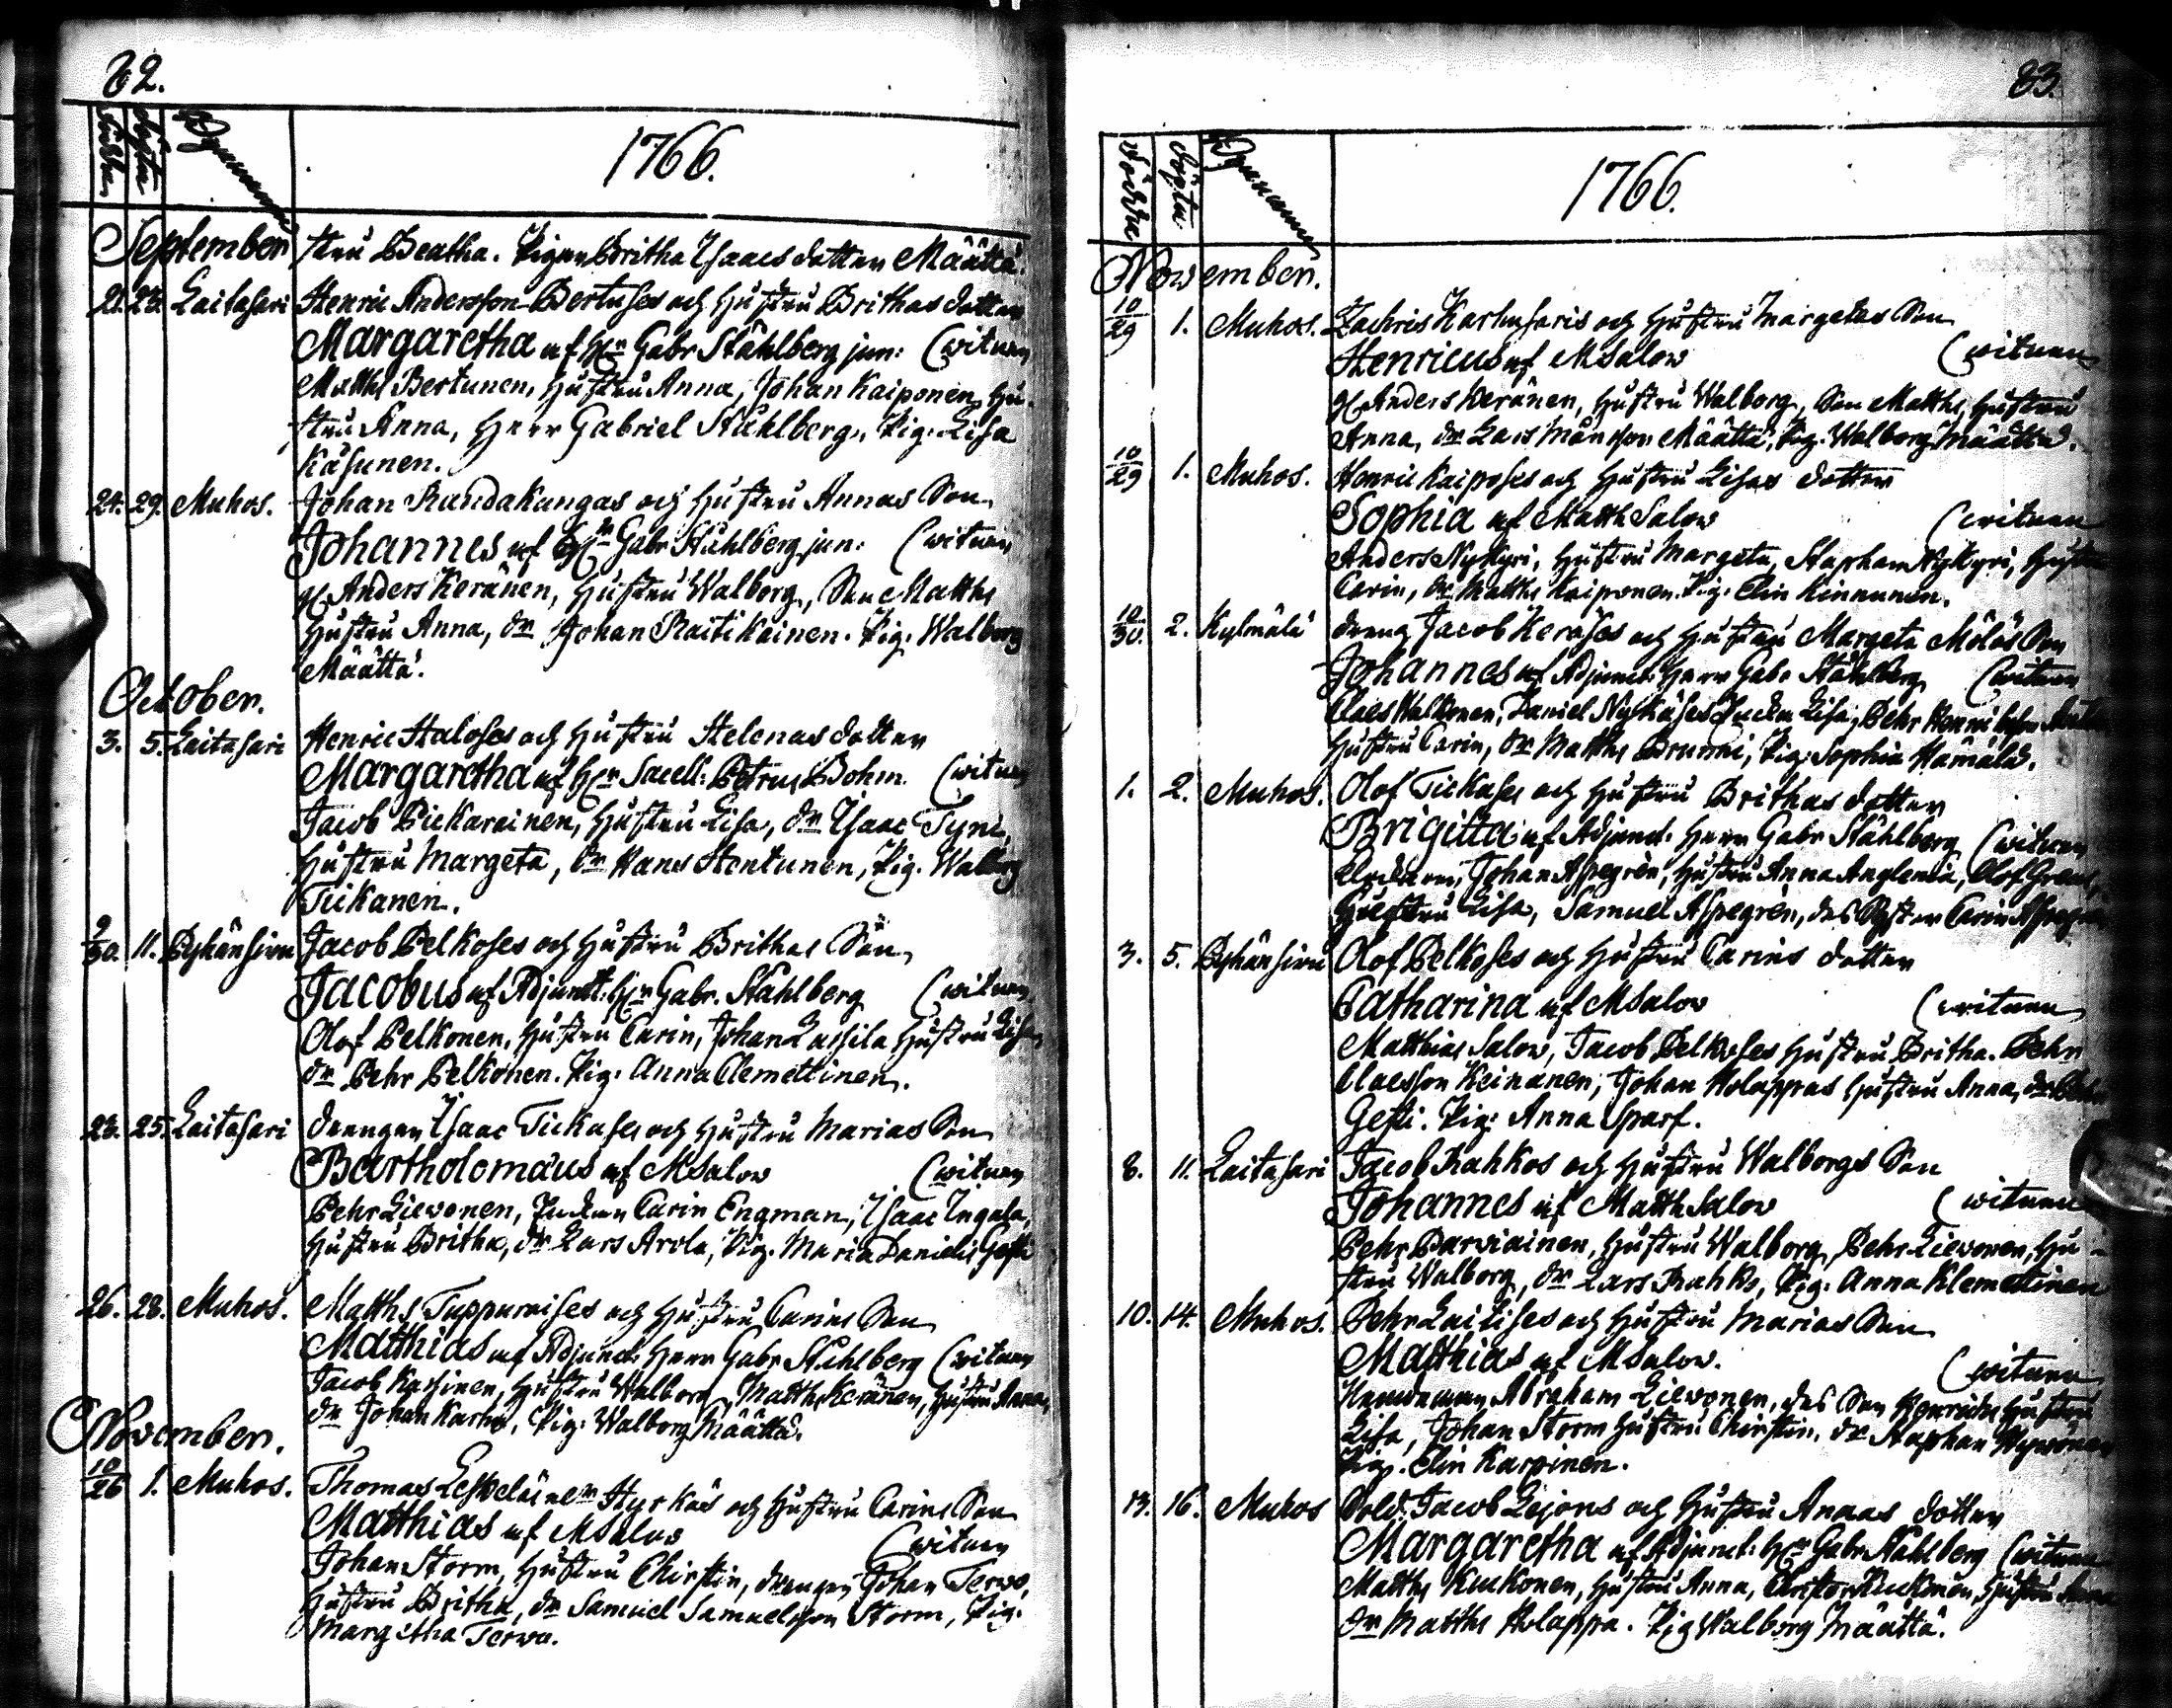 82.
Födde Döpte Byanamn
1766.
September
stru Beatha. Pigan Britha Isaacs dotter Määttä.
21. 23. Laitasari Henric Andersson Bertuses och Hustru Brithas dotter
Margaretha af Hr Gabr Ståhlberg jun: (witnen
Matths Bertunen, Hustru Anna, Johan Kaiponen, Hu-
stru Anna, Herr Gabriel Ståhlberg, Pig. Lisa
Käsunen.
24. 29. Muhos. Johan Randakangas och Hustru Annas Son
Johannes af Hr Gabr Ståhlberg jun: (witnen
Anders Keränen, Hustru Walborg, Son Matths
Hustru Anna, dr Johan Raitikainen. Pig. Walborg
Määttä.
October.
3. 5. Laitasari Henric Haloses och Hustru Helenas dotter
Margaretha af Hr Sacell: Petrus Bohm. (witnen
Jacob Pickarainen, Hustru Lisa, dr Isaac Tyni,
Hustru Margeta, dr Hans Hentunen, Pig. Walborg
Tickanen.
9/30. 11. Pyhänsivu Jacob Pelkoses och Hustru Brithas Son
Jacobus af Adjunct: Hr Gabr. Ståhlberg (witnen
Olof Pelkonen, Hustru Carin, Johan Lassila Hustru Lisa,
dr Pehr Pelkonen. Pig. Anna Clemettinen.
23. 25. Laitasari drengen Isaac Tickases och Hustru Marias Son
Bartholomäus af MSalow (witnen
Pehr Liewonen, Enckan Carin Engman, Isaac Ingala,
Hustru Britha, dr Lars Arola, Pig. Maria Danielis Gefti
26. 28. Muhos. Matths Tuppuraises och Hustru Carins Son
Matthias af Adjunct: Herr Gabr Ståhlberg (witnen
Jacob Karhinen, Hustru Walborg, Matths Keränen, Hustru Anna,
dr Johan Karhu, Pig: Walborg Määttä.
November.
10/26 1. Muhos. Thomas Leskeläinen Hyrkäs och Hustru Carins Son
Matthias af MSalow (witnen
Johan Storm, Hustru Chirstin, drengen Johan Terwo,
Hustru Britha, dr Samuel Samuelsson Storm, Pig.
Margetha Terwo.
83.
Födde Döpte Byanamn
1766.
November.
10/29 1. Muhos. Zachris Karhusaris och Hustru Margetas Son
Henricus af MSalow (witnen
Anders Keränen, Hustru Walborg, Son Matths, Hustru
Anna, dr Lars Månsson Määttä, Pig. Walborg Määttä.
10/29 1. Muhos. Henric Kaiposes och Hustru Lisas dotter
Sophia af Matth Salow (witnen
Anders Nykyri, Hustru Margeta, Staphan Nykyri, Hustru
Carin, dr Matths Kaiponen. Pig. Elin Kinnunen.
10/30. 2. Kylmälä dreng Jacob Keräses och Hustru Margeta Möläs Son
Johannes af Adjunct: Herr Gabr Ståhlberg (witnen
Claes Walkonen, Daniel Nyskäses Encka Lisa, Pehr
Hustru Carin, dr Matths Brunni, Pig: Sophia Hämälä.
1. 2. Muhos. Olof Tickases och Hustru Brithas dotter
Brigitta af Adjunct: Herr Gabr Ståhlberg (witnen
Johan Aspegrén, Hustru Anna Anglenia, Olof
Hustru Lisa, Samuel Aspegrén, des Syster Carin Aspegrén
3. 5. Pyhänsivu Olof Pelkoses och Hustru Carins dotter
Catharina af MSalow (witnen
Matthias Salow, Jacob Pelkoses Hustru Britha. Pehr
Claesson Keinänen, Johan Holappas Hustru Anna, dr Pehr
Gefti. Pig: Anna Sparf.
8. 11. Laitasari Jacob Rahkos och Hustru Walborgs Son
Johannes af Matth Salow (witnen
Pehr Parviainen, Hustru Walborg, Pehr Liewonen, Hu-
stru Walborg, dr Lars Rahko, Pig: Anna Klemettinen
10. 14. Muhos. Pehr Laitises och Hustru Marias Son
Matthias af MSalow. (witnen
Nämdeman Abraham Liewonen, des Son Henrichs Hustru
Lisa, Johan Storm Hustru Chirstin, dr Staphan
Pig. Elin Karpinen.
13. 16. Muhos Sold: Jacob Lejons och Hustru Annas dotter
Margaretha af Adjunct: Hr Gabr Ståhlberg (witnen
Matths Kukkonen, Hustru Anna, Christer Kukkonen, Hustru Anna
dr Matths Holappa. Pig Walborg Määttä.